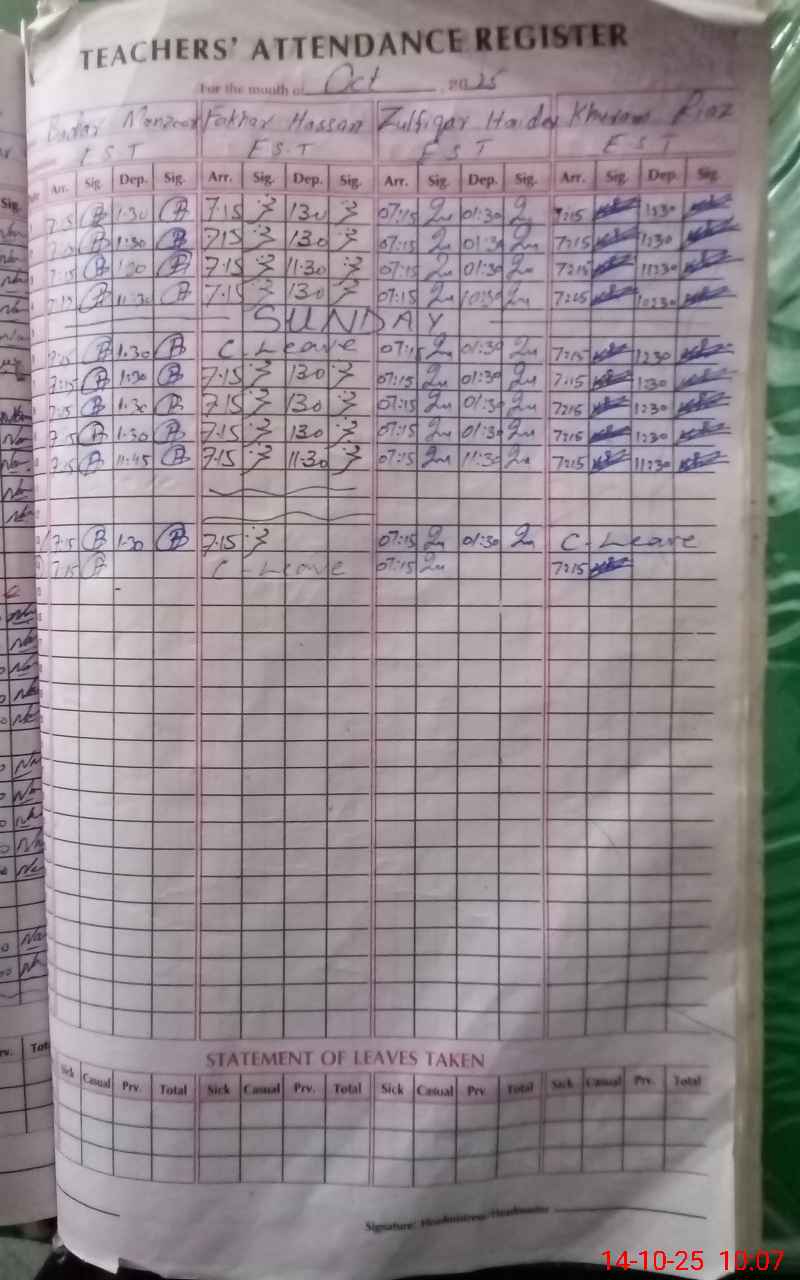 TEACHERS' ATTENDANCE REGISTER
For the month of Oct, 2025
Badar Manzoor Fakhar Hassan Zulfiqar Haider Khuram Riaz
EST EST EST EST
Arr. Sig. Dep. Sig. Arr. Sig. Dep. Sig. Arr. Sig. Dep. Sig. Arr. Sig. Dep. Sig.
7:15 1:30 7:15 130 07:15 01:30 7:15 1:30
7:15 1:30 715 130 07:15 01:30 7:15 1:30
7:15 1:30 7:15 11:30 07:15 01:30 7:15 11:30
7:15 11:30 7:15 130 07:15 10:30 7:15 10:30
SUNDAY
7:15 1:30 C-Leave 07:15 01:30 7:15 1:30
7:15 1:30 7:15 130 07:15 01:30 7:15 1:30
7:15 1:30 7:15 130 07:15 01:30 7:15 1:30
7:15 1:30 7:15 130 07:15 01:30 7:15 1:30
7:15 11:45 7:15 11:30 07:15 11:30 7:15 11:30
7:15 1:30 7:15 07:15 01:30 C-Leave
7:15 C-Leave 07:15 7:15
STATEMENT OF LEAVES TAKEN
Sick Casual Prv. Total Sick Casual Prv. Total Sick Casual Prv. Total Sick Casual Prv. Total
Signature: Headmistress/Headmaster
14-10-25 10:07